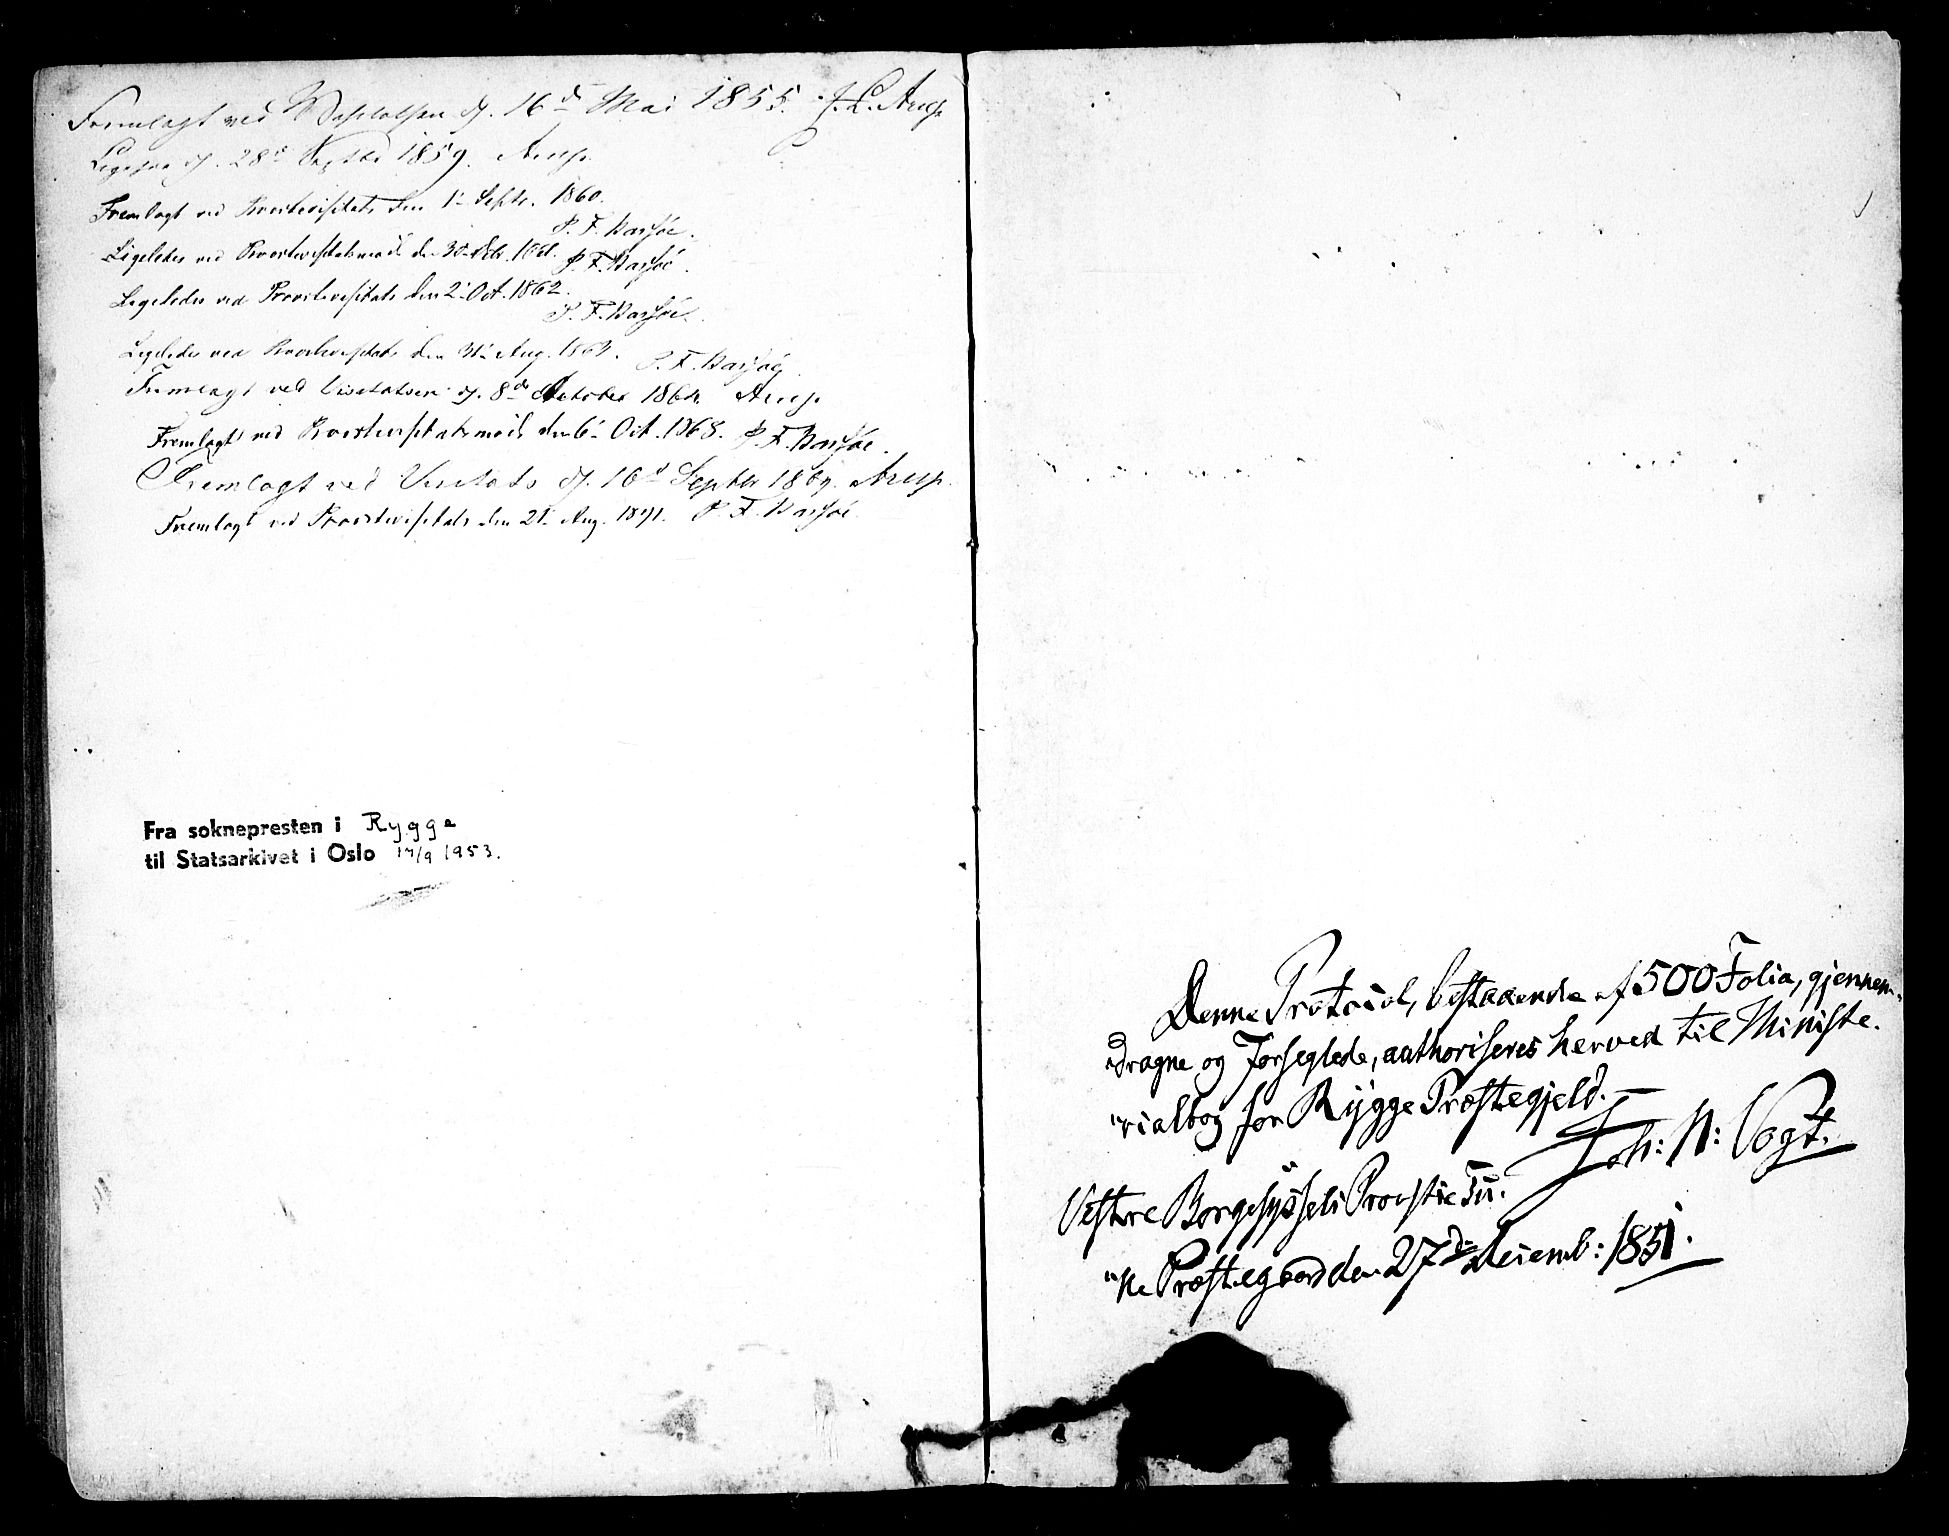 Fremlagt ved Visitatsen d. 16de Mai 1855. J. L. Arup
Ligesaa d. 28d Septbr 1859. Arup.
Fremlagt ved Provstevisitats den 1ste Septr. 1860.
P. F. Bassøe.
Ligeledes ved Provstevisitatsmøde den 30
P. F. Bassøe.
Ligeledes ved Provstevisitats den 2. Oct. 1862.
P. F. Bassøe.
Ligeledes ved Provstevisitats den 31te Aug. 1863. P. F. Bassøe
Fremlagt ved Visitatsen d. 8de October 1864 Arup.
Fremlagt ved Provstevisitatsmøde den 6. Oct. 1868. P. F. Bassøe.
Fremlagt ved Visitats d. 16d Septbr 1869. Arup.
Fremlagt ved Provstevisitats den 21. Aug. 1871. P. F. Bassøe
Fra soknepresten i Rygge
til Statsarkivet i Oslo 17/9 1953.
Denne Protocol, bestaaende af 500 Folia, gjennem-
dragne og forseglede, authoriseres herved til Ministe-
"rialbog for Rygge Præstegjeld.—
Joh: N: Vogt.
Vestre Borgesyssels Provstie Tu-
"ne Præstegaard den 27d Decemb: 1851.